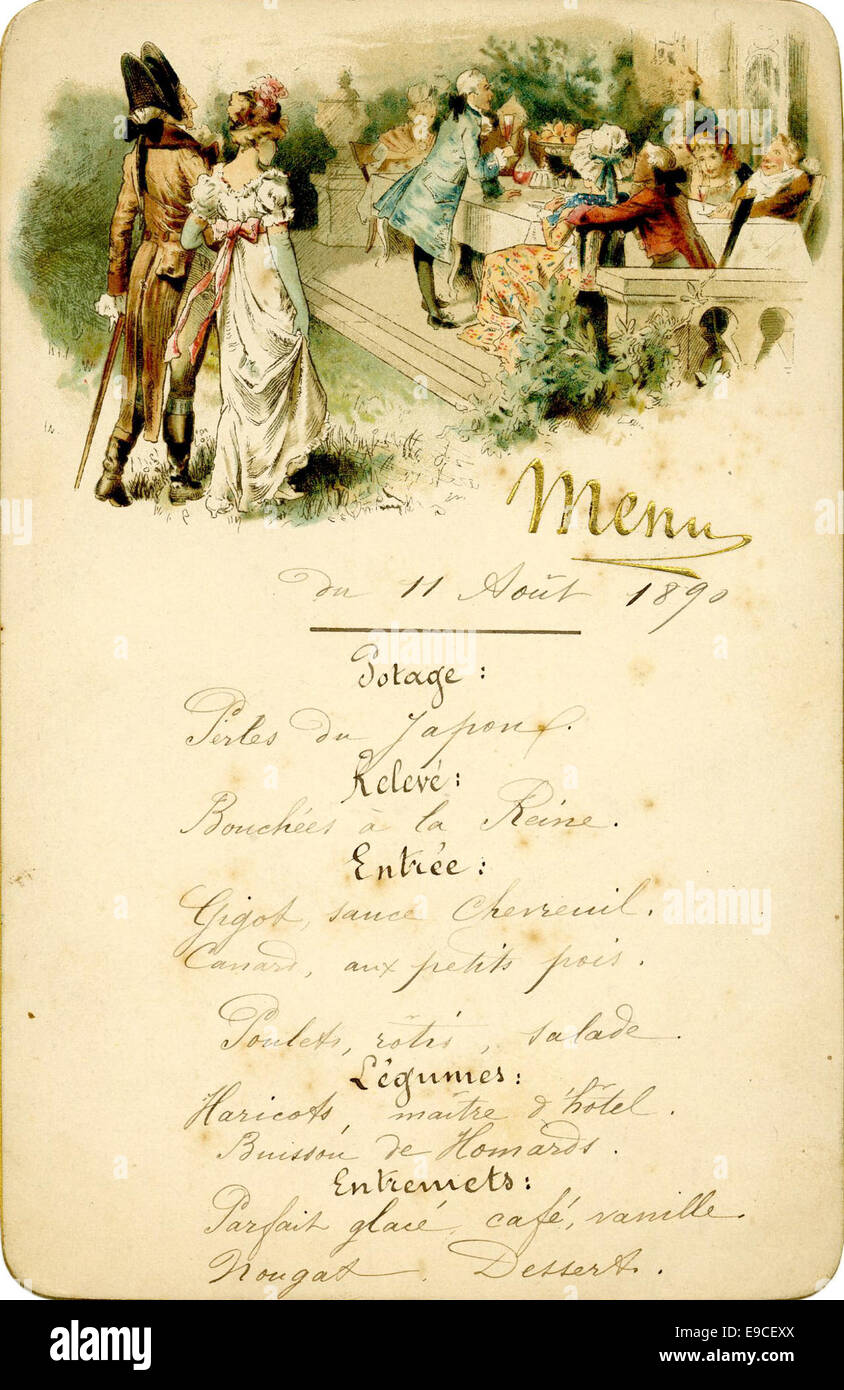 Menu
du 11 Août 1890
Potage:
Perles du Japon.
Relevé:
Bouchées à la Reine.
Entrée:
Gigot, sauce Chevreuil.
Canard, aux petits pois.
Poulets, rôtis, salade.
Légumes:
Haricots, maître d'hôtel.
Buisson de Homards.
Entremets:
Parfait glacé, café, vanille.
Nougat. Dessert.
alamy
Image ID: E9CEXX
www.alamy.com